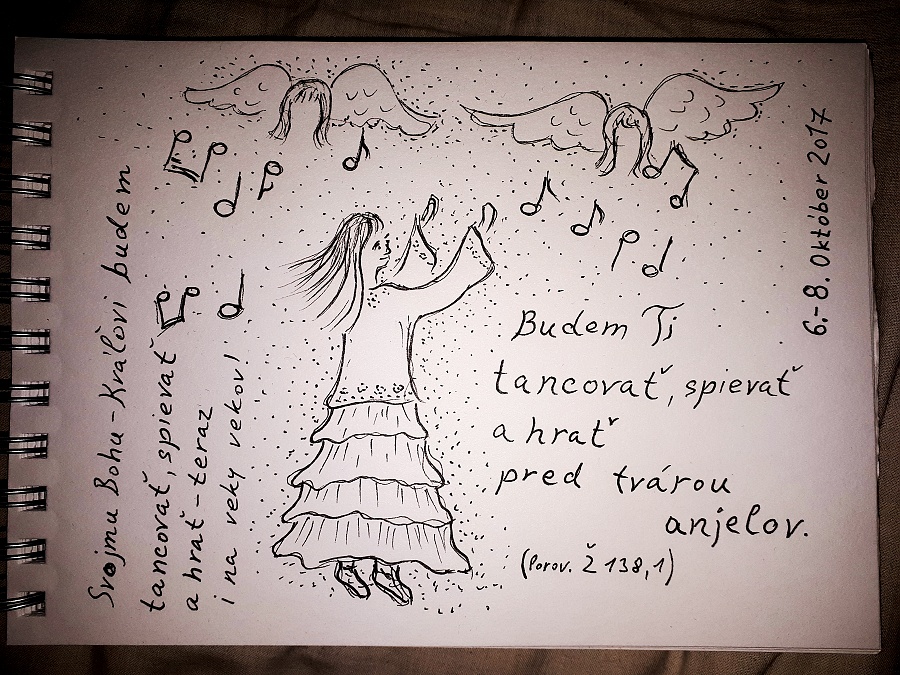 Svojmu Bohu-Kráľovi budem
tancovať, spievať
a hrať - teraz
i na veky vekov!
Budem Ti
tancovať, spievať
a hrať
pred tvárou
anjelov.
(Porov. Ž 138,1)
6.-8. Október 2017